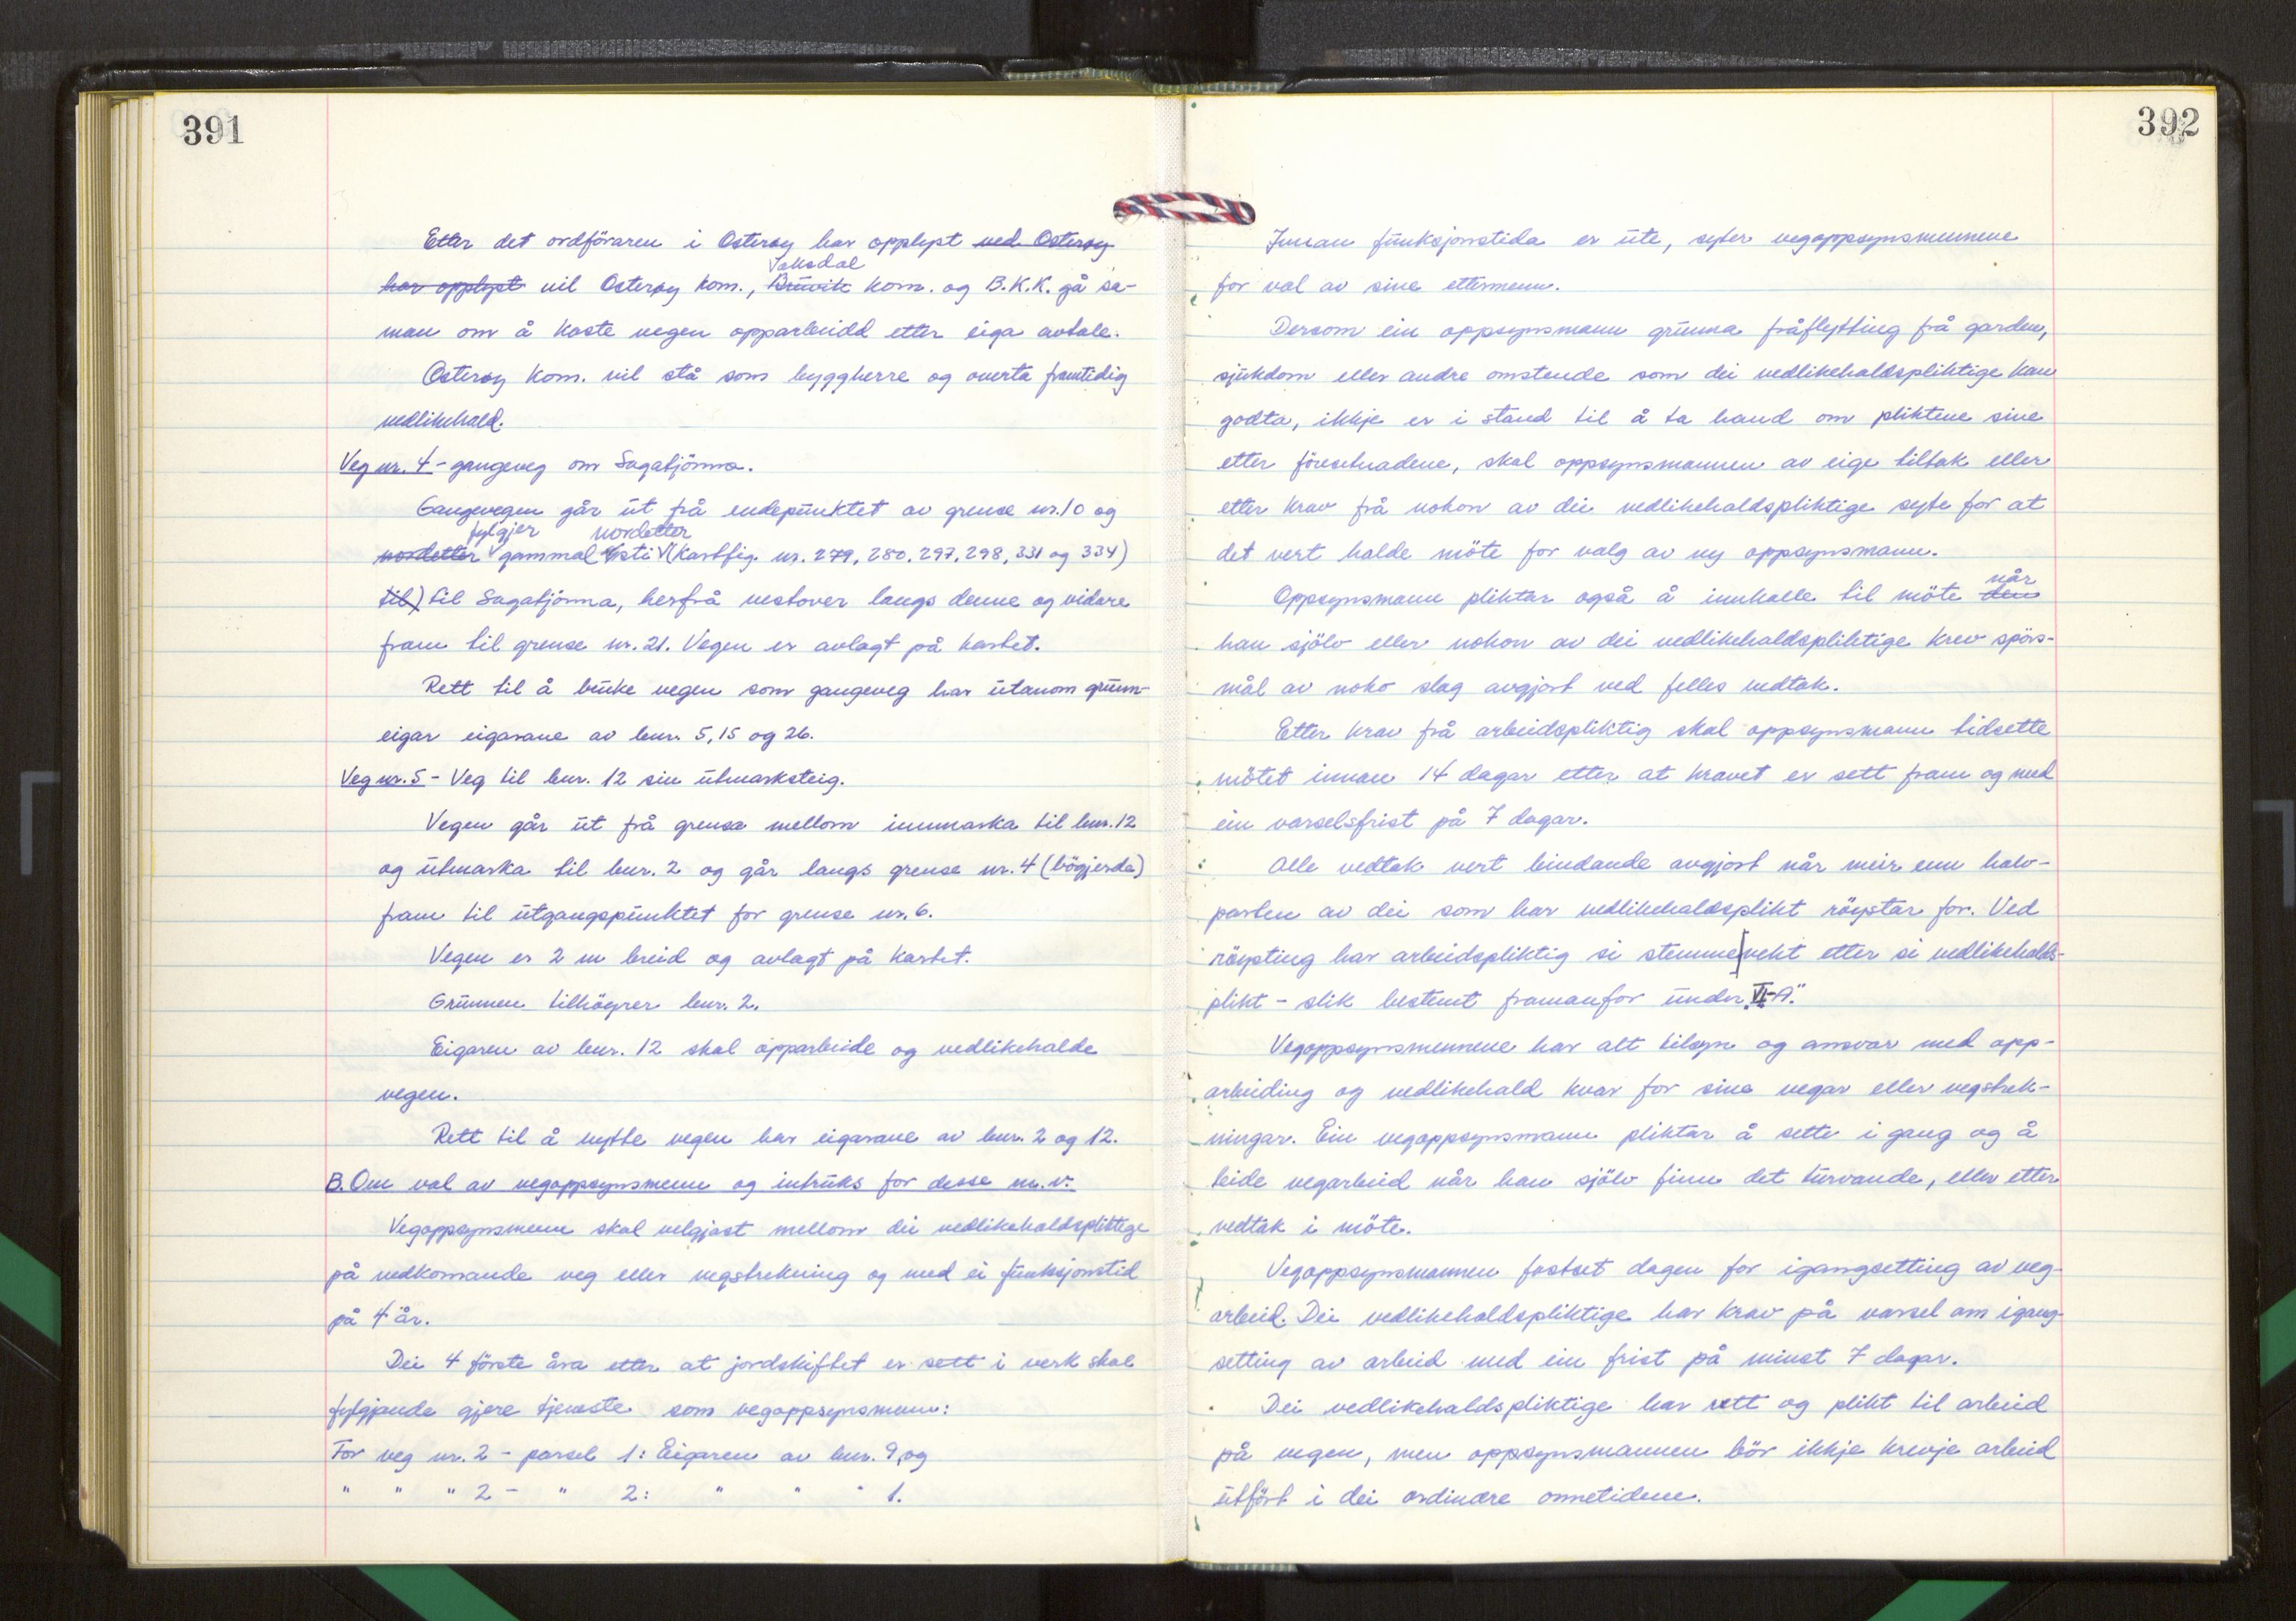 391
Etter det ordföraren i Osteröy har opplyst ved Osteröy
har opplyst vil Osteröy kom., Bruvik Vaksdal kom. og B.K.K. gå sa-
man om å koste vegen opparbeidd etter eiga avtale.
Osteröy kom. vil stå som byggherre og overta framtidig
vedlikehald.
Veg nr. 4 - gangeveg om Sagatjönna.
Gangevegen går ut frå endepunktet av grense nr. 10 og
nordetter fylgjer gammal sti nordetter (kartfig. nr. 279, 280, 297, 298, 331 og 334)
til) til Sagatjönna, herfrå vestover langs denne og vidare
fram til grense nr. 21. Vegen er avlagt på kartet.
Rett til å bruke vegen som gangeveg har utanom grunn-
eigar eigarane av bnr. 5, 15 og 26.
Veg nr. 5 - Veg til bnr. 12 sin utmarksteig.
Vegen går ut frå grensa mellom innmarka til bnr. 12
og utmarka til bnr. 2 og går langs grense nr. 4 (bögjerda)
fram til utgangspunktet for grense nr. 6.
Vegen er 2 m breid og avlagt på kartet.
Grunnen tilhöyrer bnr. 2.
Eigaren av bnr. 12 skal opparbeide og vedlikehalde
vegen.
Rett til å nytte vegen har eigarane av bnr. 2 og 12.
B. Om val av vegoppsynsmenn og intruks for desse m.v.
Vegoppsynsmenn skal velgjast mellom dei vedlikehaldspliktige
på vedkomande veg eller vegstrekning og med ei funksjonstid
på 4 år.
Dei 4 förste åra etter at jordskiftet er sett i verk skal
fylgjande gjere tjeneste som vegoppsynsmenn:
For veg nr. 2 - parsel 1: Eigaren av bnr. 9, og
" " " 2 - " 2: " " " 1.
392
Innan funksjonstida er ute, syter vegoppsynsmennene
for val av sine ettermenn.
Dersom ein oppsynsmann grunna fråflytting frå garden,
sjukdom eller andre omstende som dei vedlikehaldspliktige kan
godta, ikkje er i stand til å ta hand om pliktene sine
etter föresetnadene, skal oppsynsmannen av eige tiltak eller
etter krav frå nokon av dei vedlikehaldspliktige syte for at
det vert halde möte for valg av ny oppsynsmann.
Oppsynsmann pliktar også å innkalle til möte den når
han sjölv eller nokon av dei vedlikehaldspliktige krev spörs-
mål av noko slag avgjort ved felles vedtak.
Etter krav frå arbeidspliktig skal oppsynsmann tidsette
mötet innan 14 dagar etter at kravet er sett fram og med
ein varselsfrist på 7 dagar.
Alle vedtak vert bindande avgjort når meir enn halv-
parten av dei som har vedlikehaldsplikt röystar for. Ved
röysting har arbeidspliktig si stemmevekt etter si vedlikehalds-
plikt - slik bestemt framanfor under „VI-A."
Vegoppsynsmennene har alt tilsyn og ansvar med opp-
arbeiding og vedlikehald kvar for sine vegar eller vegstrek-
ningar. Ein vegoppsynsmann pliktar å sette i gang og å
leide vegarbeid når han sjölv finn det turvande, eller etter
vedtak i möte.
Vegoppsynsmannen fastset dagen for igangsetting av veg-
arbeid. Dei vedlikehaldspliktige har krav på varsel om igang-
setting av arbeid med ein frist på minst 7 dagar.
Dei vedlikehaldspliktige har rett og plikt til arbeid
på vegen, men oppsynsmannen bör ikkje krevje arbeid
utfört i dei ordinære onnetidene.